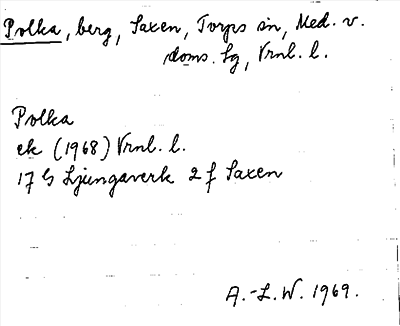 Polka, berg, Saxen, Torps sn, Med. v.
doms. sg, Vrnl. l.
Polka
ek (1968) Vrnl. l.
17 G Ljungaverk 2 f Saxen
A.-L.W. 1969.